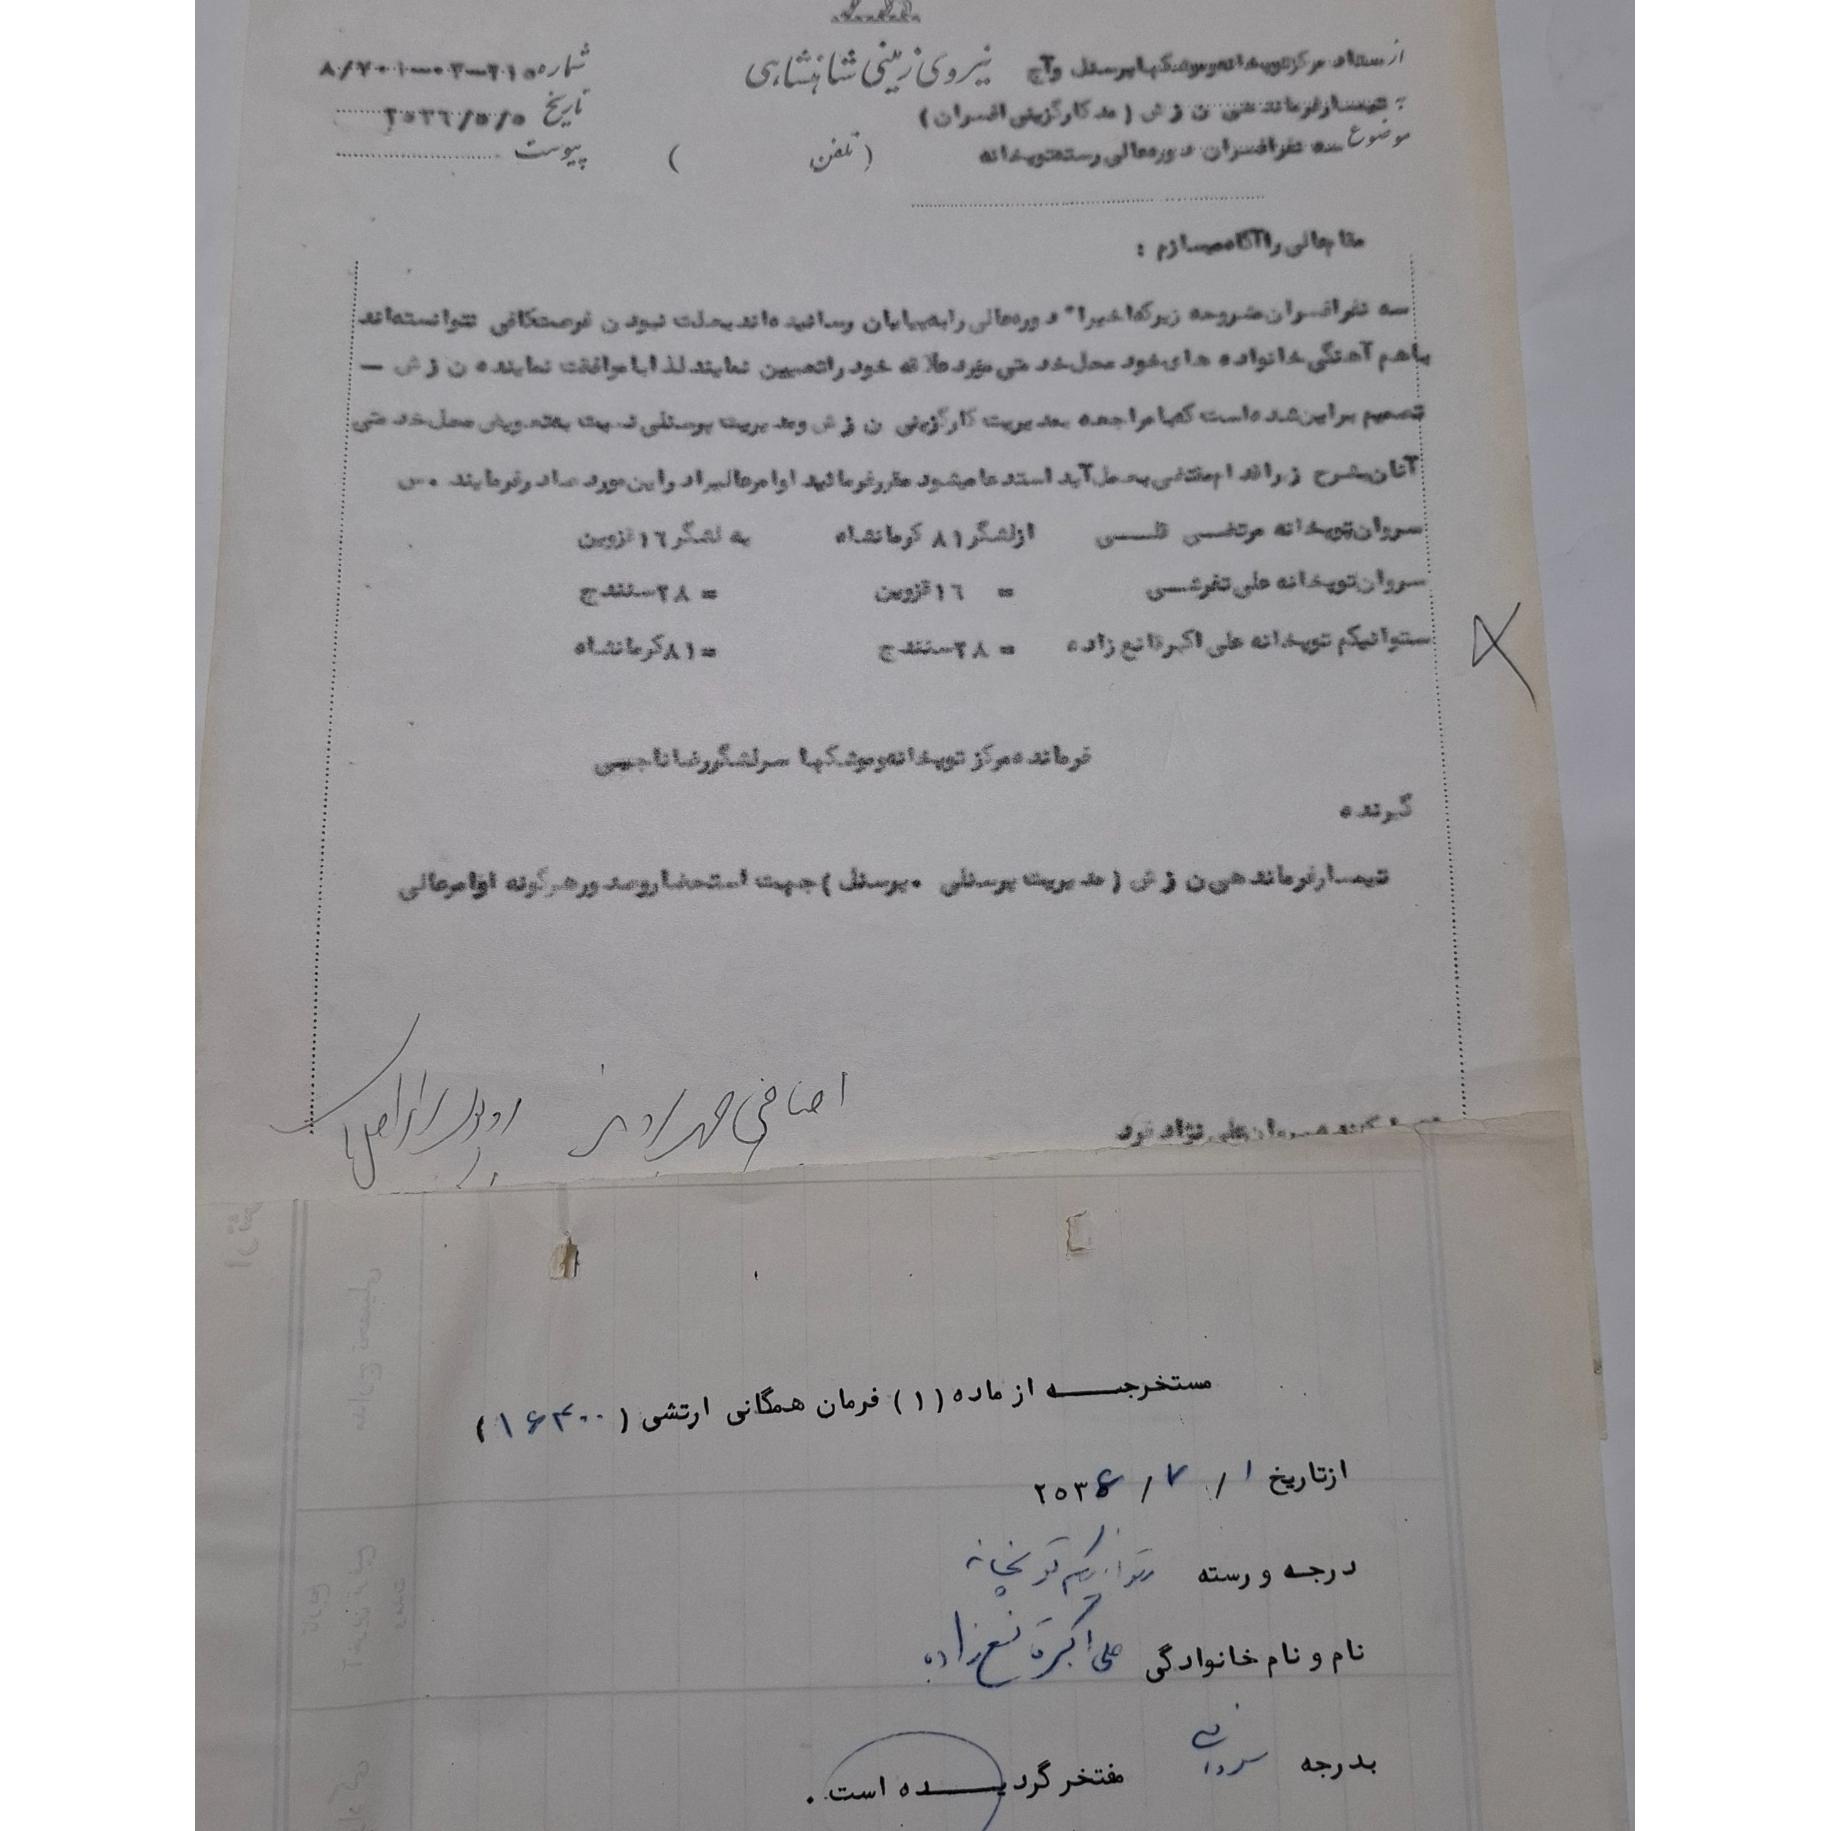 از ستاد مرکز توپخانه و موشکها پرسنل و آج
نیروی زمینی شاهنشاهی
شماره ۸/۷۰۱-۰۳-۲۱۵
به تیمسار فرماندهی ن ز ش (مد کارگزینی افسران)
تاریخ ۲۵۳۶/۵/۵
موضوع سه نفر افسران دوره عالی رسته توپخانه
(تلفن )
پیوست
مقام عالی را آگاه میسازم :
سه نفر افسران مشروحه زیر که اخیرا" دوره عالی را به پایان رسانیده اند بعلت نبودن فرصت کافی نتوانسته اند
با هم آهنگی خانواده های خود محل خدمتی مورد علاقه خود را تعیین نمایند لذا با موافقت نماینده ن ز ش –
تصمیم بر این شده است که با مراجعه بمدیریت کارگزینی ن ز ش و مدیریت پرسنلی نسبت بتعویض محل خدمتی
آنان بشرح زیر اقدام مقتضی بعمل آید استدعا میشود مقرر فرمائید اوامر عالی را در این مورد صادر فرمایند . س
سروان توپخانه مرتضی قلسی از لشگر ۸۱ کرمانشاه به لشگر ۱۶ قزوین
سروان توپخانه علی تفرشی = ۱۶ قزوین = ۲۸ سنندج
ستوانیکم توپخانه علی اکبر قانع زاده = ۲۸ سنندج = ۸۱ کرمانشاه
فرمانده مرکز توپخانه و موشکها سرلشگر رضا ناجی
گیرنده
تیمسار فرماندهی ن ز ش (مدیریت پرسنلی . پرسنل) جهت استحضار و صدور هرگونه اوامر عالی
سروان علی نژاد فرد
مستخرجه از ماده (۱) فرمان همگانی ارتشی (۱۶۴۰۰)
از تاریخ ۱ / ۷ / ۲۵۳۶
درجه و رسته ستوانیکم توپخانه
نام و نام خانوادگی علی اکبر قانع زاده
بدرجه سروانی مفتخر گردیده است .